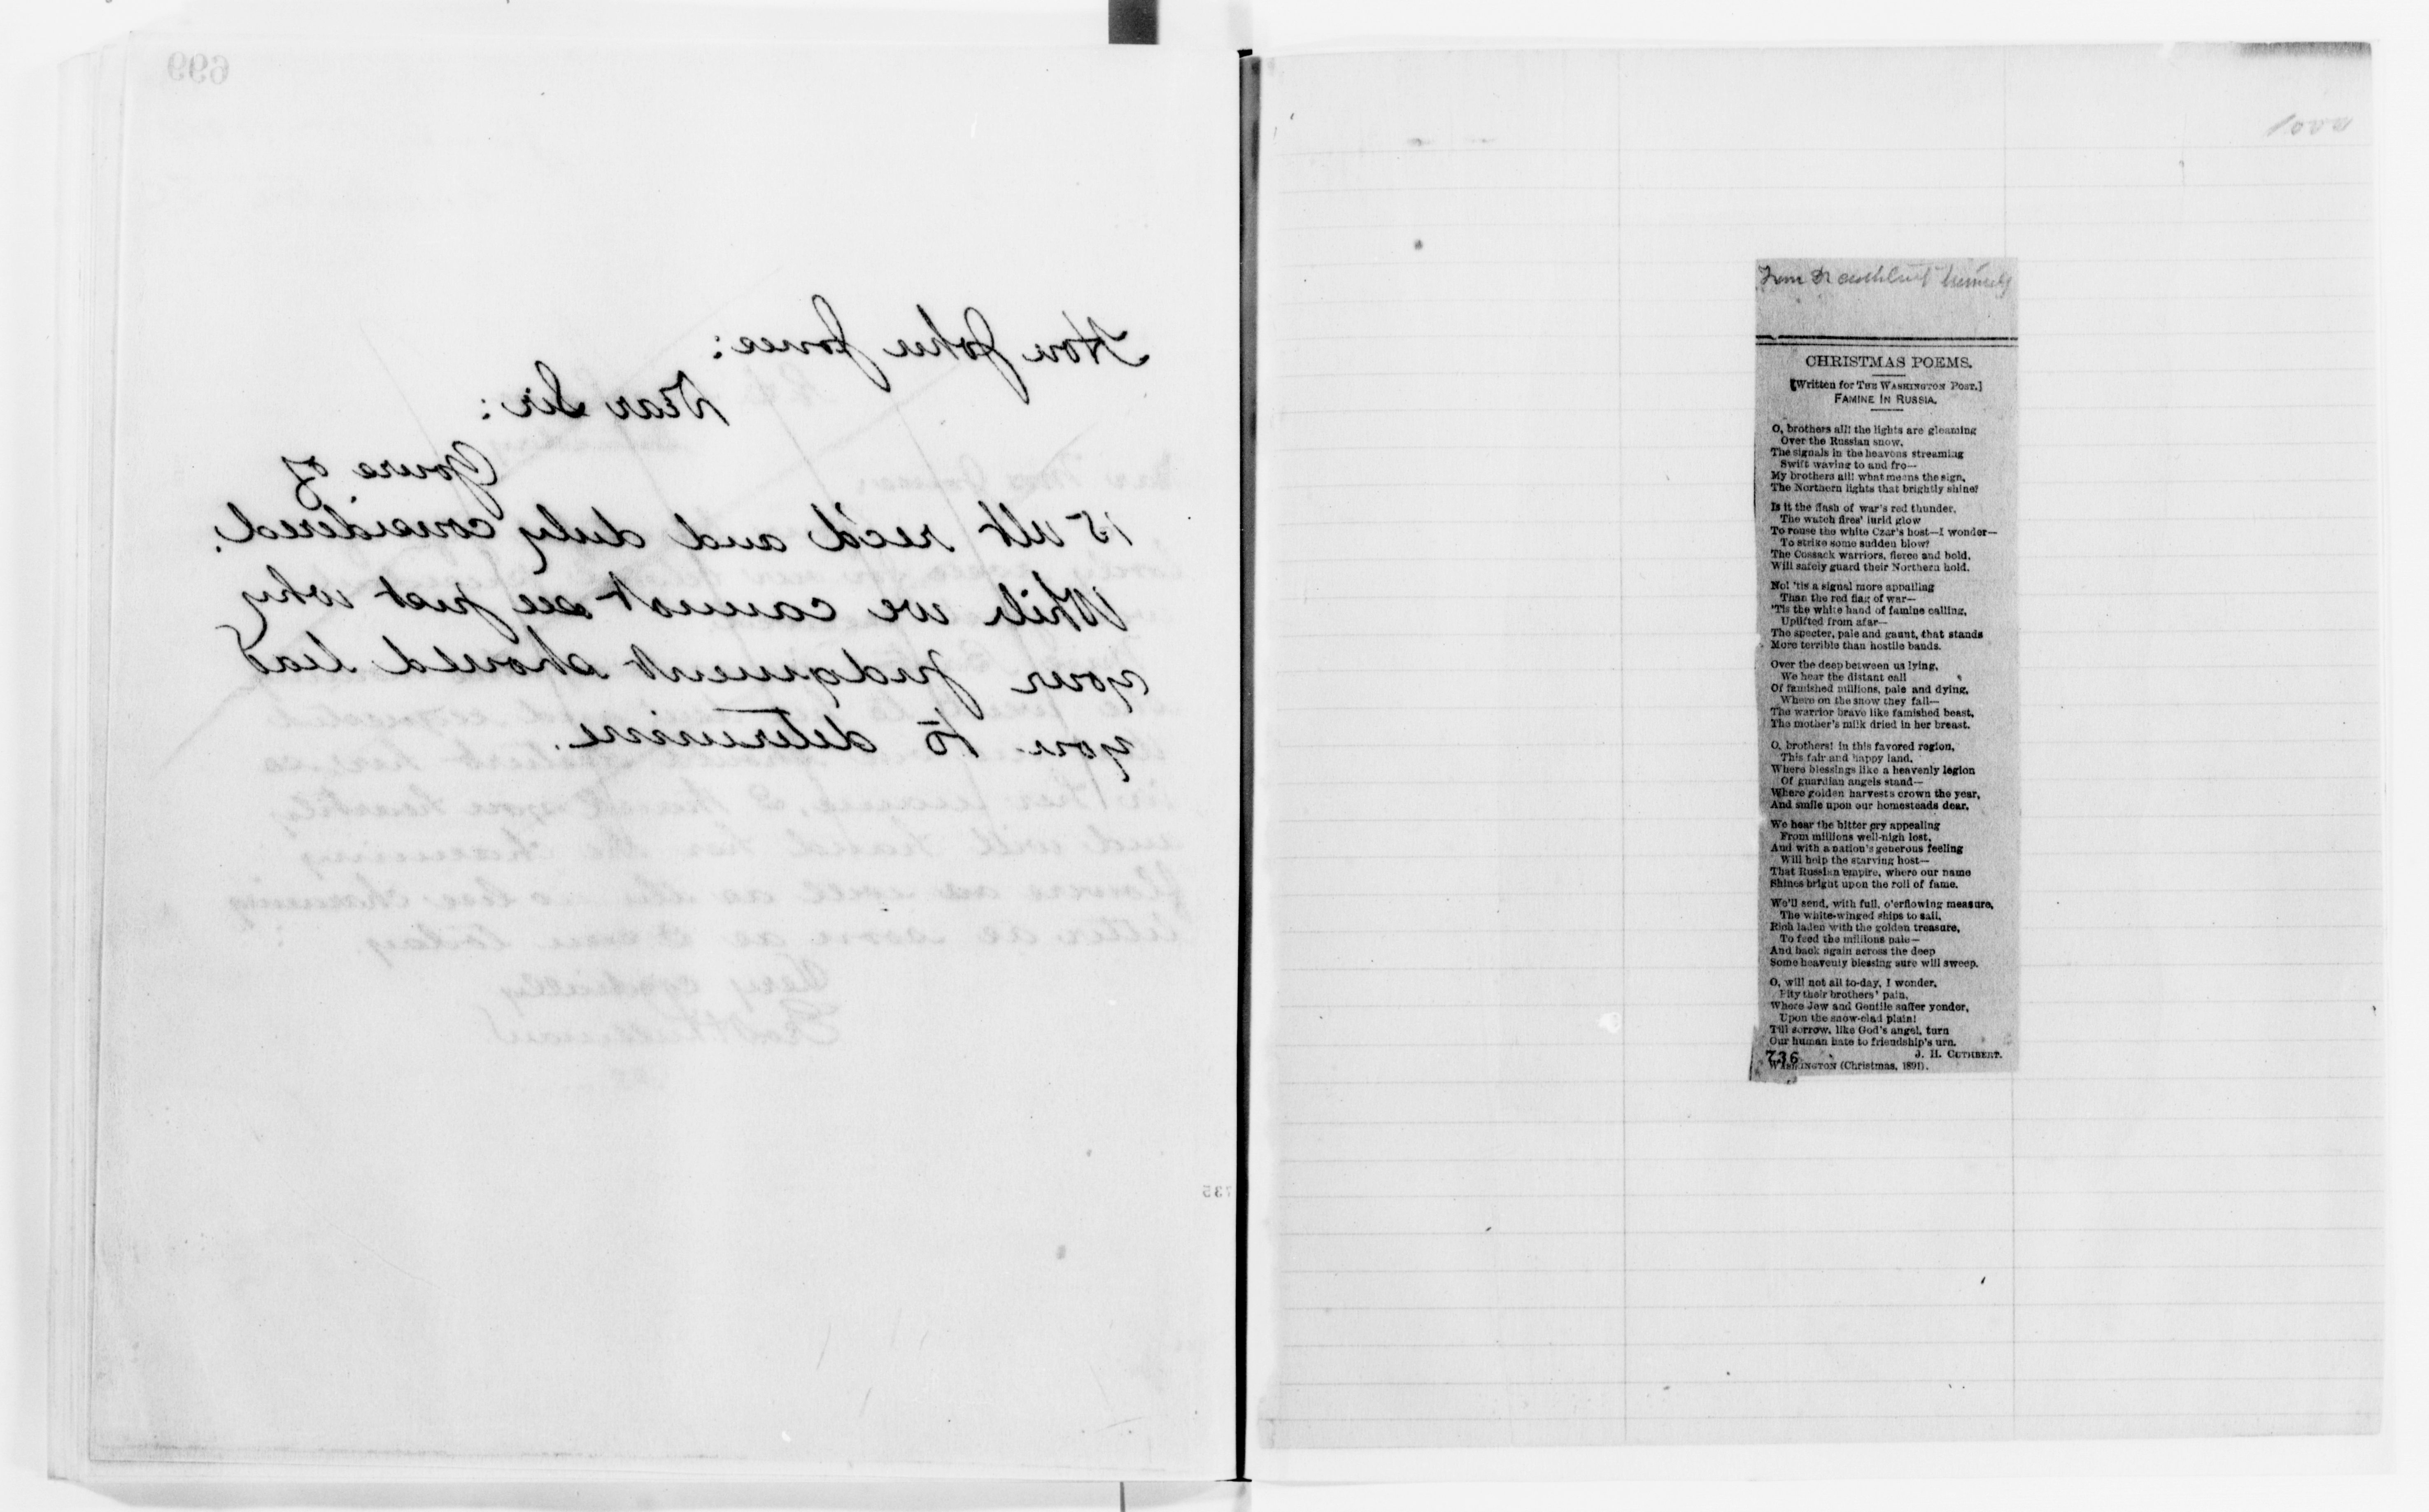 699
Hon John Jones:
Dear Sir:
Yours of
15 ult rec'd and duly considered.
While we cannot see just why
your judgment should lead
you to determine.
Very cordially
735
1000
From Dr Cuthbert
CHRISTMAS POEMS.
[Written for THE WASHINGTON POST.]
FAMINE IN RUSSIA.
O, brothers all! the lights are gleaming
Over the Russian snow,
The signals in the heavens streaming
Swift waving to and fro—
My brothers all! what means the sign,
The Northern lights that brightly shine?
Is it the flash of war's red thunder,
The watch fires' lurid glow
To rouse the white Czar's host—I wonder—
To strike some sudden blow?
The Cossack warriors, fierce and bold,
Will safely guard their Northern hold.
No! 'tis a signal more appalling
Than the red flag of war—
'Tis the white hand of famine calling,
Uplifted from afar—
The specter, pale and gaunt, that stands
More terrible than hostile bands.
Over the deep between us lying,
We hear the distant call
Of famished millions, pale and dying,
Where on the snow they fall—
The warrior brave like famished beast,
The mother's milk dried in her breast.
O, brothers! in this favored region,
This fair and happy land,
Where blessings like a heavenly legion
Of guardian angels stand—
Where golden harvests crown the year,
And smile upon our homesteads dear,
We hear the bitter cry appealing
From millions well-nigh lost,
And with a nation's generous feeling
Will help the starving host—
That Russian empire, where our name
Shines bright upon the roll of fame.
We'll send, with full, o'erflowing measure,
The white-winged ships to sail,
Rich laden with the golden treasure,
To feed the millions pale—
And back again across the deep
Some heavenly blessing sure will sweep.
O, will not all to-day, I wonder,
Pity their brothers' pain,
Where Jew and Gentile suffer yonder,
Upon the snow-clad plain!
Till sorrow, like God's angel, turn
Our human hate to friendship's urn.
736 J. H. CUTHBERT.
WASHINGTON (Christmas, 1891).